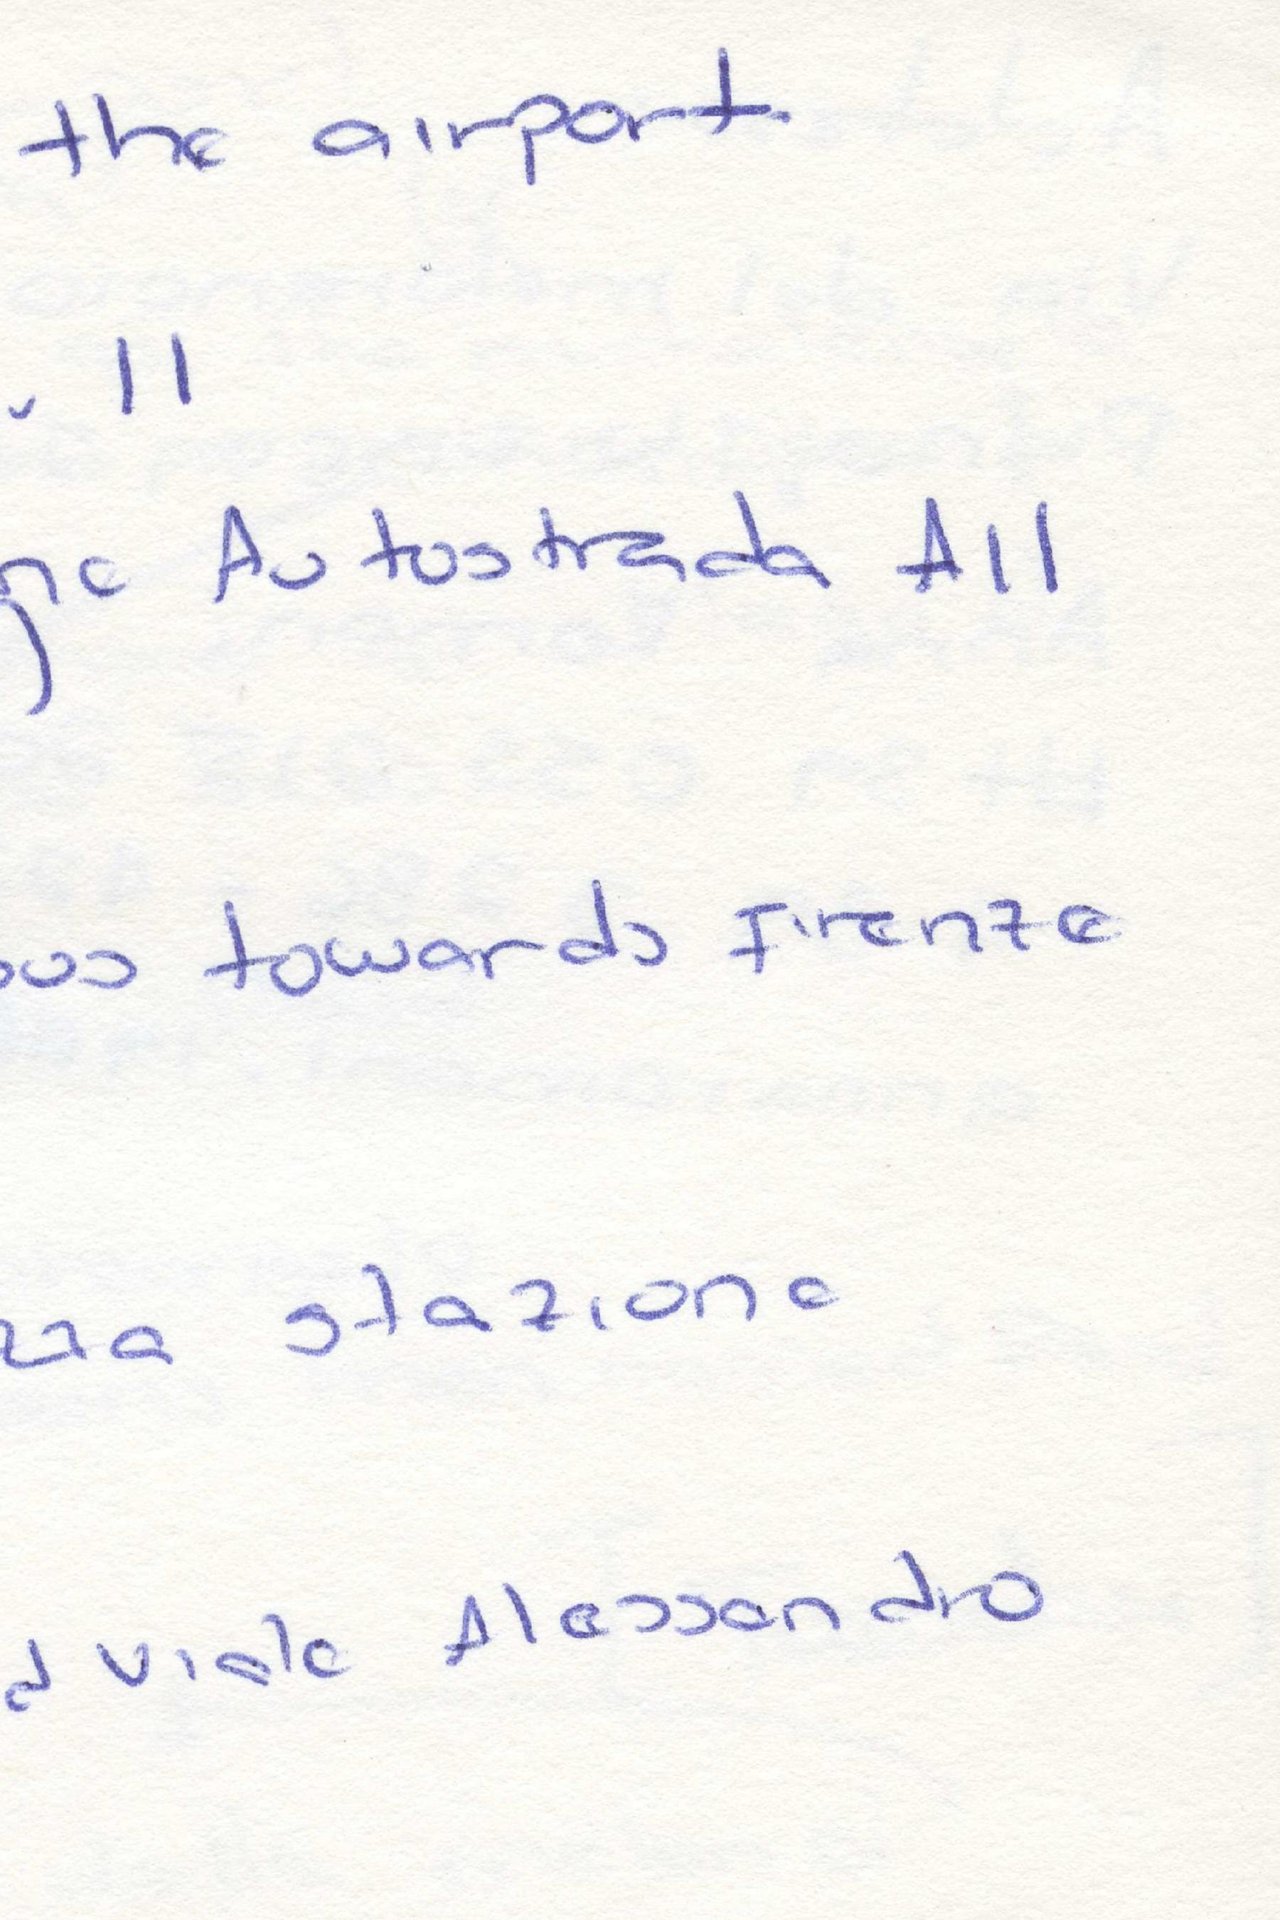 the airport.
11
Autostrada A11
towards Firenze
stazione
viale Alessandro